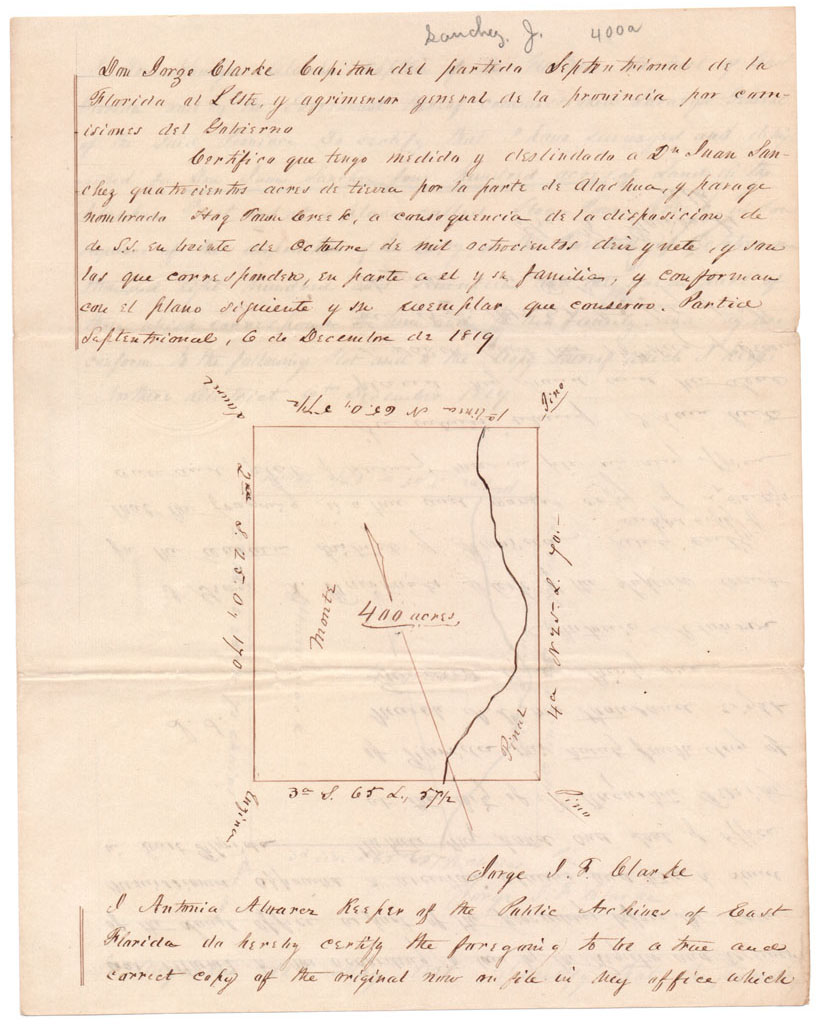 Sanchez. J. 400a
Don Jorge Clarke Capitan del partido Septentrional de la
Florida al L'Este, y agrimensor general de la provincia por com-
isiones del Gobierno
Certifico que tengo medida y deslindado a Dn Juan San-
chez quatrocientos acres de tierra por la parte de Alachua, y parage
nombrado Hog Town Creek, a consequencia de la disposicion de
de S.S. en de Octubre de mil ochocientos y , y son
las que corresponden, en parte a el y se familia, y conforman
con el plano siguiente y su que conservo. Partido
Septentrional, 6 de Decembre de 1819
Laurel
1a linea N 65. O,
Pino
2na S. 25. O, 170
Monte
400 acres,
Pinal
4a N 25 L. 70.-
3a S. 65 L, 57½
Pino
Jorge J. F. Clarke
I Antonio Alvarez Keeper of the Public Archives of East
Florida do hereby certify the foregoing to be a true and
correct copy of the original now on file in my office which